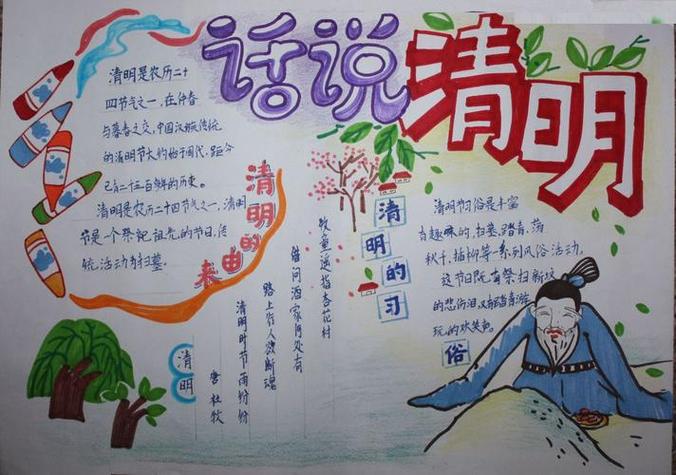 话说清明
清明是农历二十
四节气之一，在仲春
与暮春之交，中国汉族传统
的清明节大约始于周代，距今
已有二千五百多年的历史。
清明是农历二十四节气之一，清明
节是一个祭祀祖先的节日，传
统活动为扫墓。
清明的由来
清明
唐 杜牧
清明时节雨纷纷
路上行人欲断魂
借问酒家何处有
牧童遥指杏花村
清明的习俗
清明节习俗是丰富
有趣味的，扫墓，踏青，荡
秋千，插柳等一系列风俗活动。
这节日既有祭扫新坟
的悲伤泪，又有踏青游
玩的欢笑声。